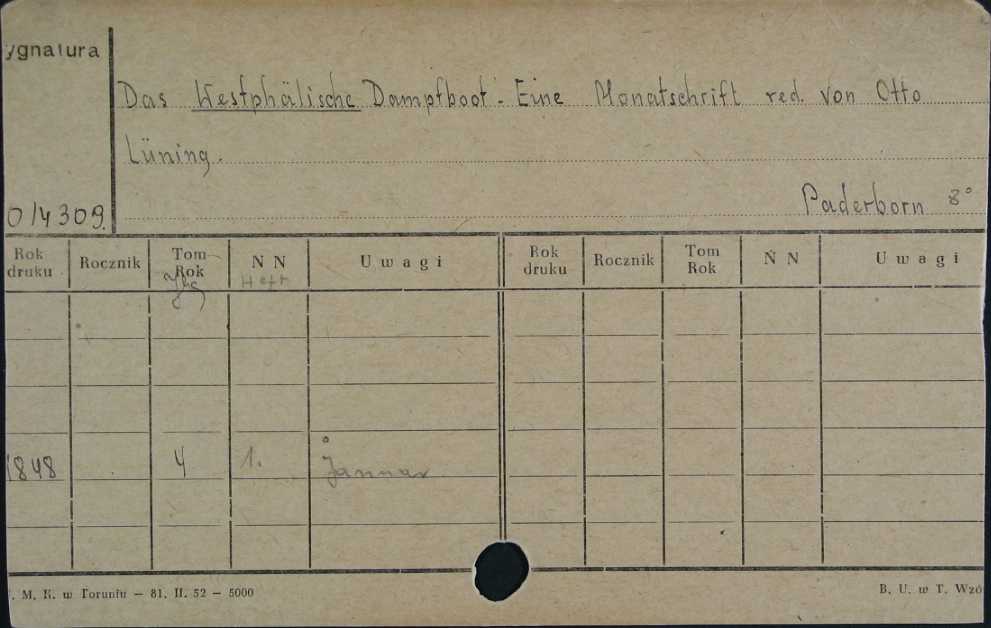 ygnatura
Das Westphälische Dampfboot. Eine Monatschrift red. von Otto
Lüning.
Paderborn 8°
0/4309.
Rok druku Rocznik Tom Rok N N Uwagi Rok druku Rocznik Tom Rok N N Uwagi
Jhg Heft
1848 4 1. Jannar
. M. K. w Toruniu — 81. II. 52 — 5000 B. U. w T. Wzó